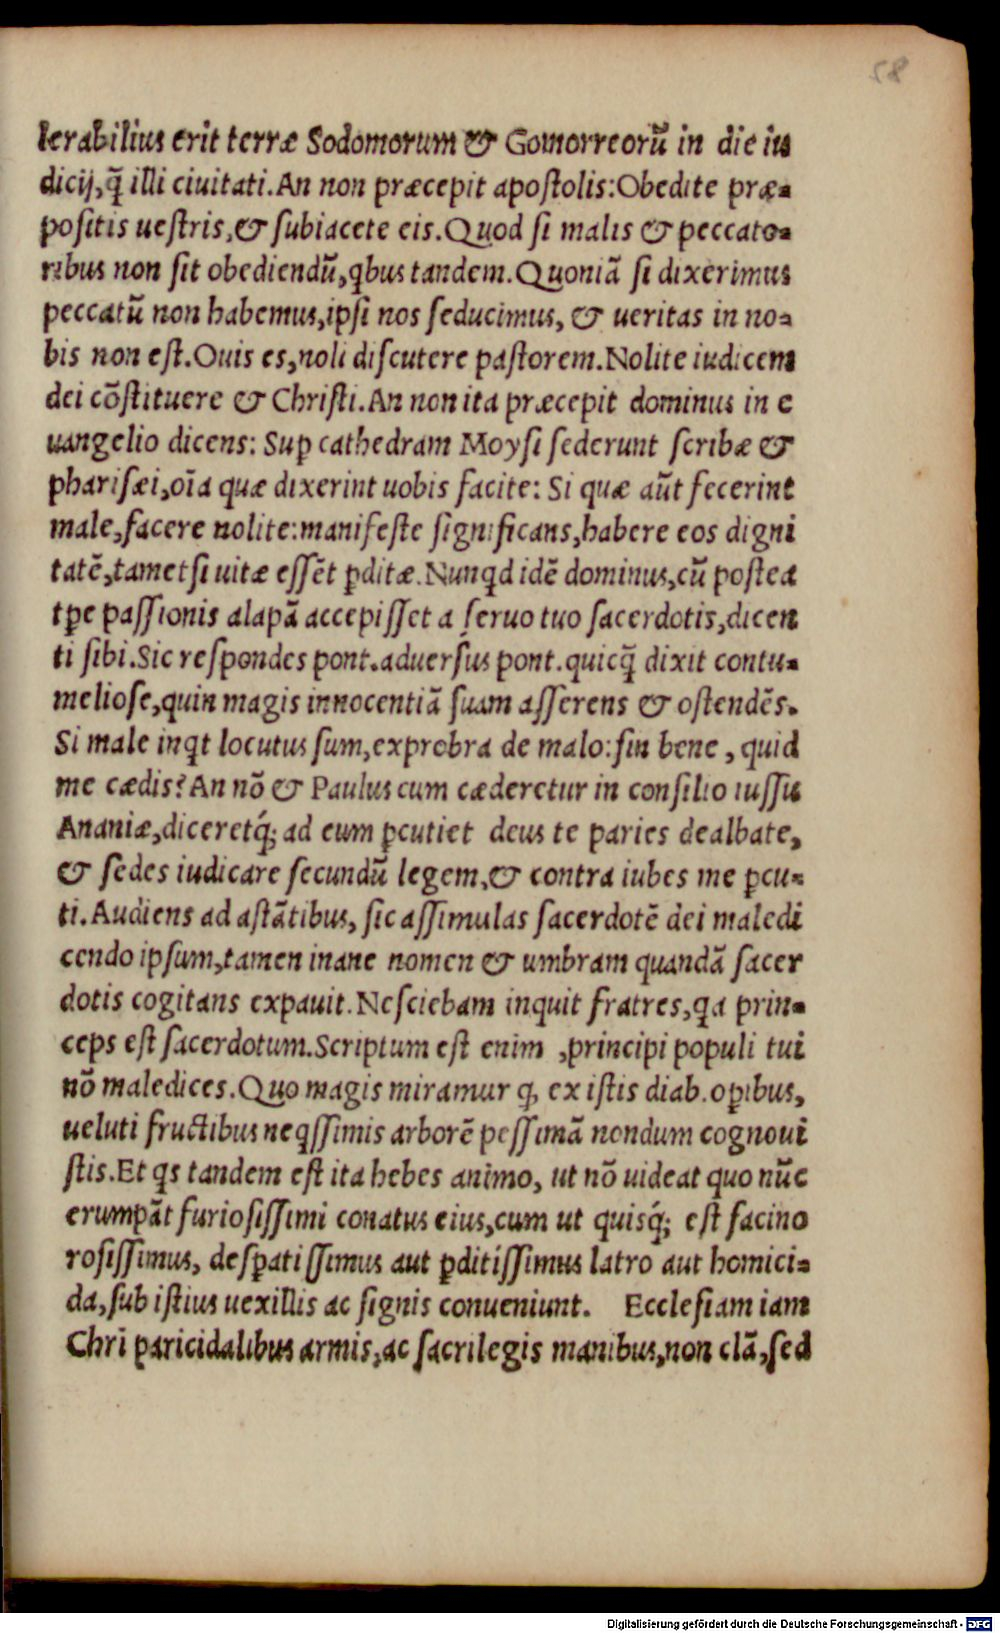 58
lerabilius erit terræ Sodomorum & Gomorreorũ in die iu
dicij,q̃ illi ciuitati.An non præcepit apoſtolis:Obedite præ-
poſitis ueſtris,& ſubiacete eis.Quod ſi malis & peccato-
ribus non ſit obediendũ,qbus tandem.Quoniã ſi dixerimus
peccatũ non habemus,ipſi nos ſeducimus, & ueritas in no-
bis non eſt.Ouis es,noli diſcutere paſtorem.Nolite iudicem
dei cõſtituere & Chriſti.An non ita præcepit dominus in e
uangelio dicens: Suꝑ cathedram Moyſi ſederunt ſcribæ &
phariſæi,oĩa quæ dixerint uobis facite: Si quæ aũt fecerint
male,facere nolite:manifeſte ſignificans,habere eos digni
tatẽ,tametſi uitæ eſſẽt ꝑditæ.Nunqd idẽ dominus,cũ poſtea
tꝑe paſſionis alapã accepiſſet a ſeruo tuo ſacerdotis,dicen
ti ſibi.Sic reſpondes pont.aduerſus pont.quicq̃ dixit contu-
melioſe,quin magis innocentiã ſuam aſſerens & oſtendẽs.
Si male inqt locutus ſum,exprobra de malo:ſin bene , quid
me cædis?An nõ & Paulus cum cæderetur in conſilio iuſſu
Ananiæ,diceretq́; ad eum ꝑcutiet deus te paries dealbate,
& ſedes iudicare ſecundũ legem,& contra iubes me ꝑcu-
ti.Audiens ad aſtãtibus, ſic aſſimulas ſacerdotẽ dei maledi
cendo ipſum,tamen inane nomen & umbram quandã ſacer
dotis cogitans expauit.Neſciebam inquit fratres,qa prin-
ceps eſt ſacerdotum.Scriptum eſt enim ,principi populi tui
nõ maledices.Quo magis miramur ꝙ ex iſtis diab.oꝑibus,
ueluti fructibus neqſſimis arborẽ peſſimã nondum cognoui
ſtis.Et qs tandem eſt ita hebes animo, ut nõ uideat quo nũc
erumpãt furioſiſſimi conatus eius,cum ut quisq́; eſt facino
roſiſſimus, deſꝑatiſſimus aut ꝑditiſſimus latro aut homici-
da,ſub iſtius uexillis ac ſignis conueniunt. Eccleſiam iam
Chrĩ paricidalibus armis,ac ſacrilegis manibus,non clã,ſed
Digitalisierung gefördert durch die Deutsche Forschungsgemeinschaft - DFG